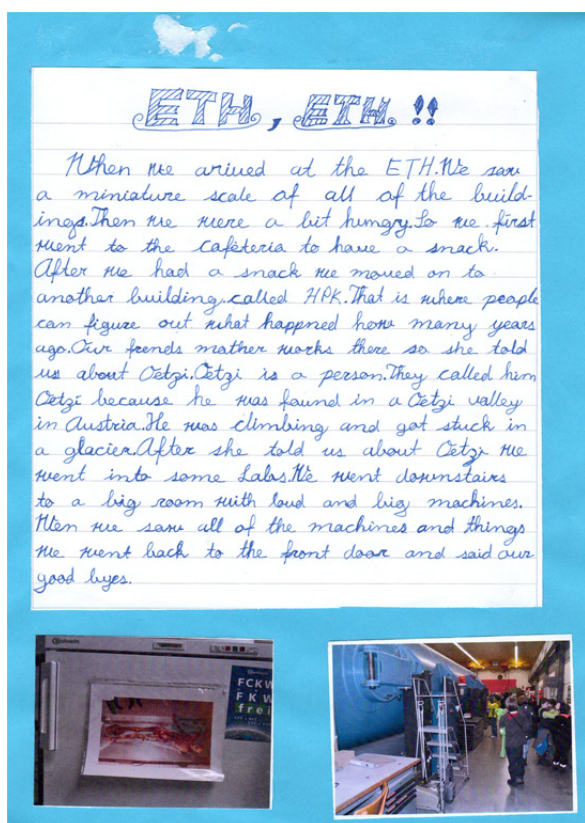 ETH, ETH. !!
When we arived at the ETH.We saw
a miniature scale of all of the build-
ings.Then we were a bit hungry.So we first
went to the cafeteria to have a snack.
After we had a snack we moved on to
another building.called HPK.That is where people
can figure out what happned how many years
ago.Our frends mather works there so she told
us about Oetzi.Oetzi is a person.They called him
Oetzi because he was found in a Oetzi valley
in Austria.He was climbing and got stuck in
a glacier.After she told us about Oetzi we
went into some Labs.We went downstairs
to a big room with loud and big machines.
Wen we saw all of the machines and things
we went back to the front door and said our
good byes.
FCKW
FKW
frei